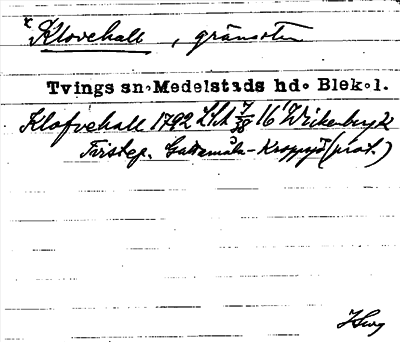 x Klovehall, gränssten
Tvings sn. Medelstads hd. Blek. l.
Klofvehall 1792 LSA 7/38 16 Wickenbryk
Gattamåla - Kroppsjö (prot.)